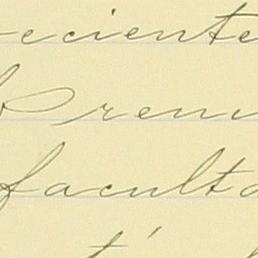 eciente
Prenu
faculta